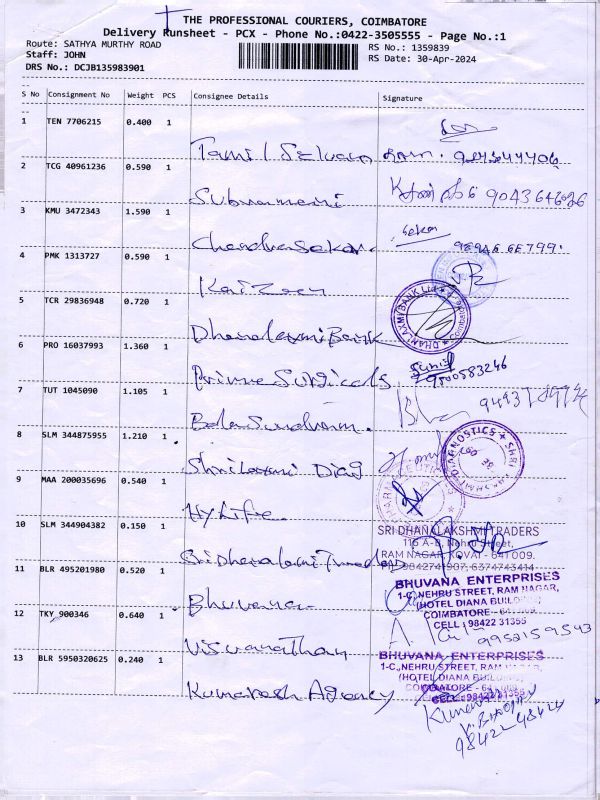 THE PROFESSIONAL COURIERS, COIMBATORE
Delivery Runsheet - PCX - Phone No.:0422-3505555 - Page No.:1
Route: SATHYA MURTHY ROAD
Staff: JOHN
DRS No.: DCJB135983901
RS No.: 1359839
RS Date: 30-Apr-2024
S No Consignment No Weight PCS Consignee Details Signature
1 TEN 7706215 0.400 1
Tamil Selvan
2 TCG 40961236 0.590 1
Subramani 9043646026
3 KMU 3472343 1.590 1
Chandrasekar. Sekar
4 PMK 1313727 0.590 1
Kaizen
5 TCR 29836948 0.720 1
DHANLAXMI BANK LTD
Dhanalaxmi Bank
6 PRO 16037993 1.360 1
Prime Surgicals Sunil 9500583246
7 TUT 1045090 1.105 1
Bala Sundaram.
8 SLM 344875955 1.210 1
Shrilaxmi Diag
DIAGNOSTICS SHRI
9 MAA 200035696 0.540 1
Hylife
10 SLM 344904382 0.150 1
SRI DHANALAKSHMI TRADERS
116 A-B, Nehru Street,
RAM NAGAR, KOVAI - 641 009.
9842741907, 6374743414
Sri Dhanalaxmi Traders
11 BLR 495201980 0.520 1
BHUVANA ENTERPRISES
1-C, NEHRU STREET, RAM NAGAR,
(HOTEL DIANA BUILDING)
COIMBATORE
CELL : 98422 31355
Bhuvana
12 TKY 900346 0.640 1
Viswanathan 9952159543
13 BLR 5950320625 0.240 1
BHUVANA ENTERPRISES
1-C, NEHRU STREET, RAM NAGAR,
(HOTEL DIANA BUILDING)
COIMBATORE
CELL : 98422 31355
Kumaresh Agency
98422 48424